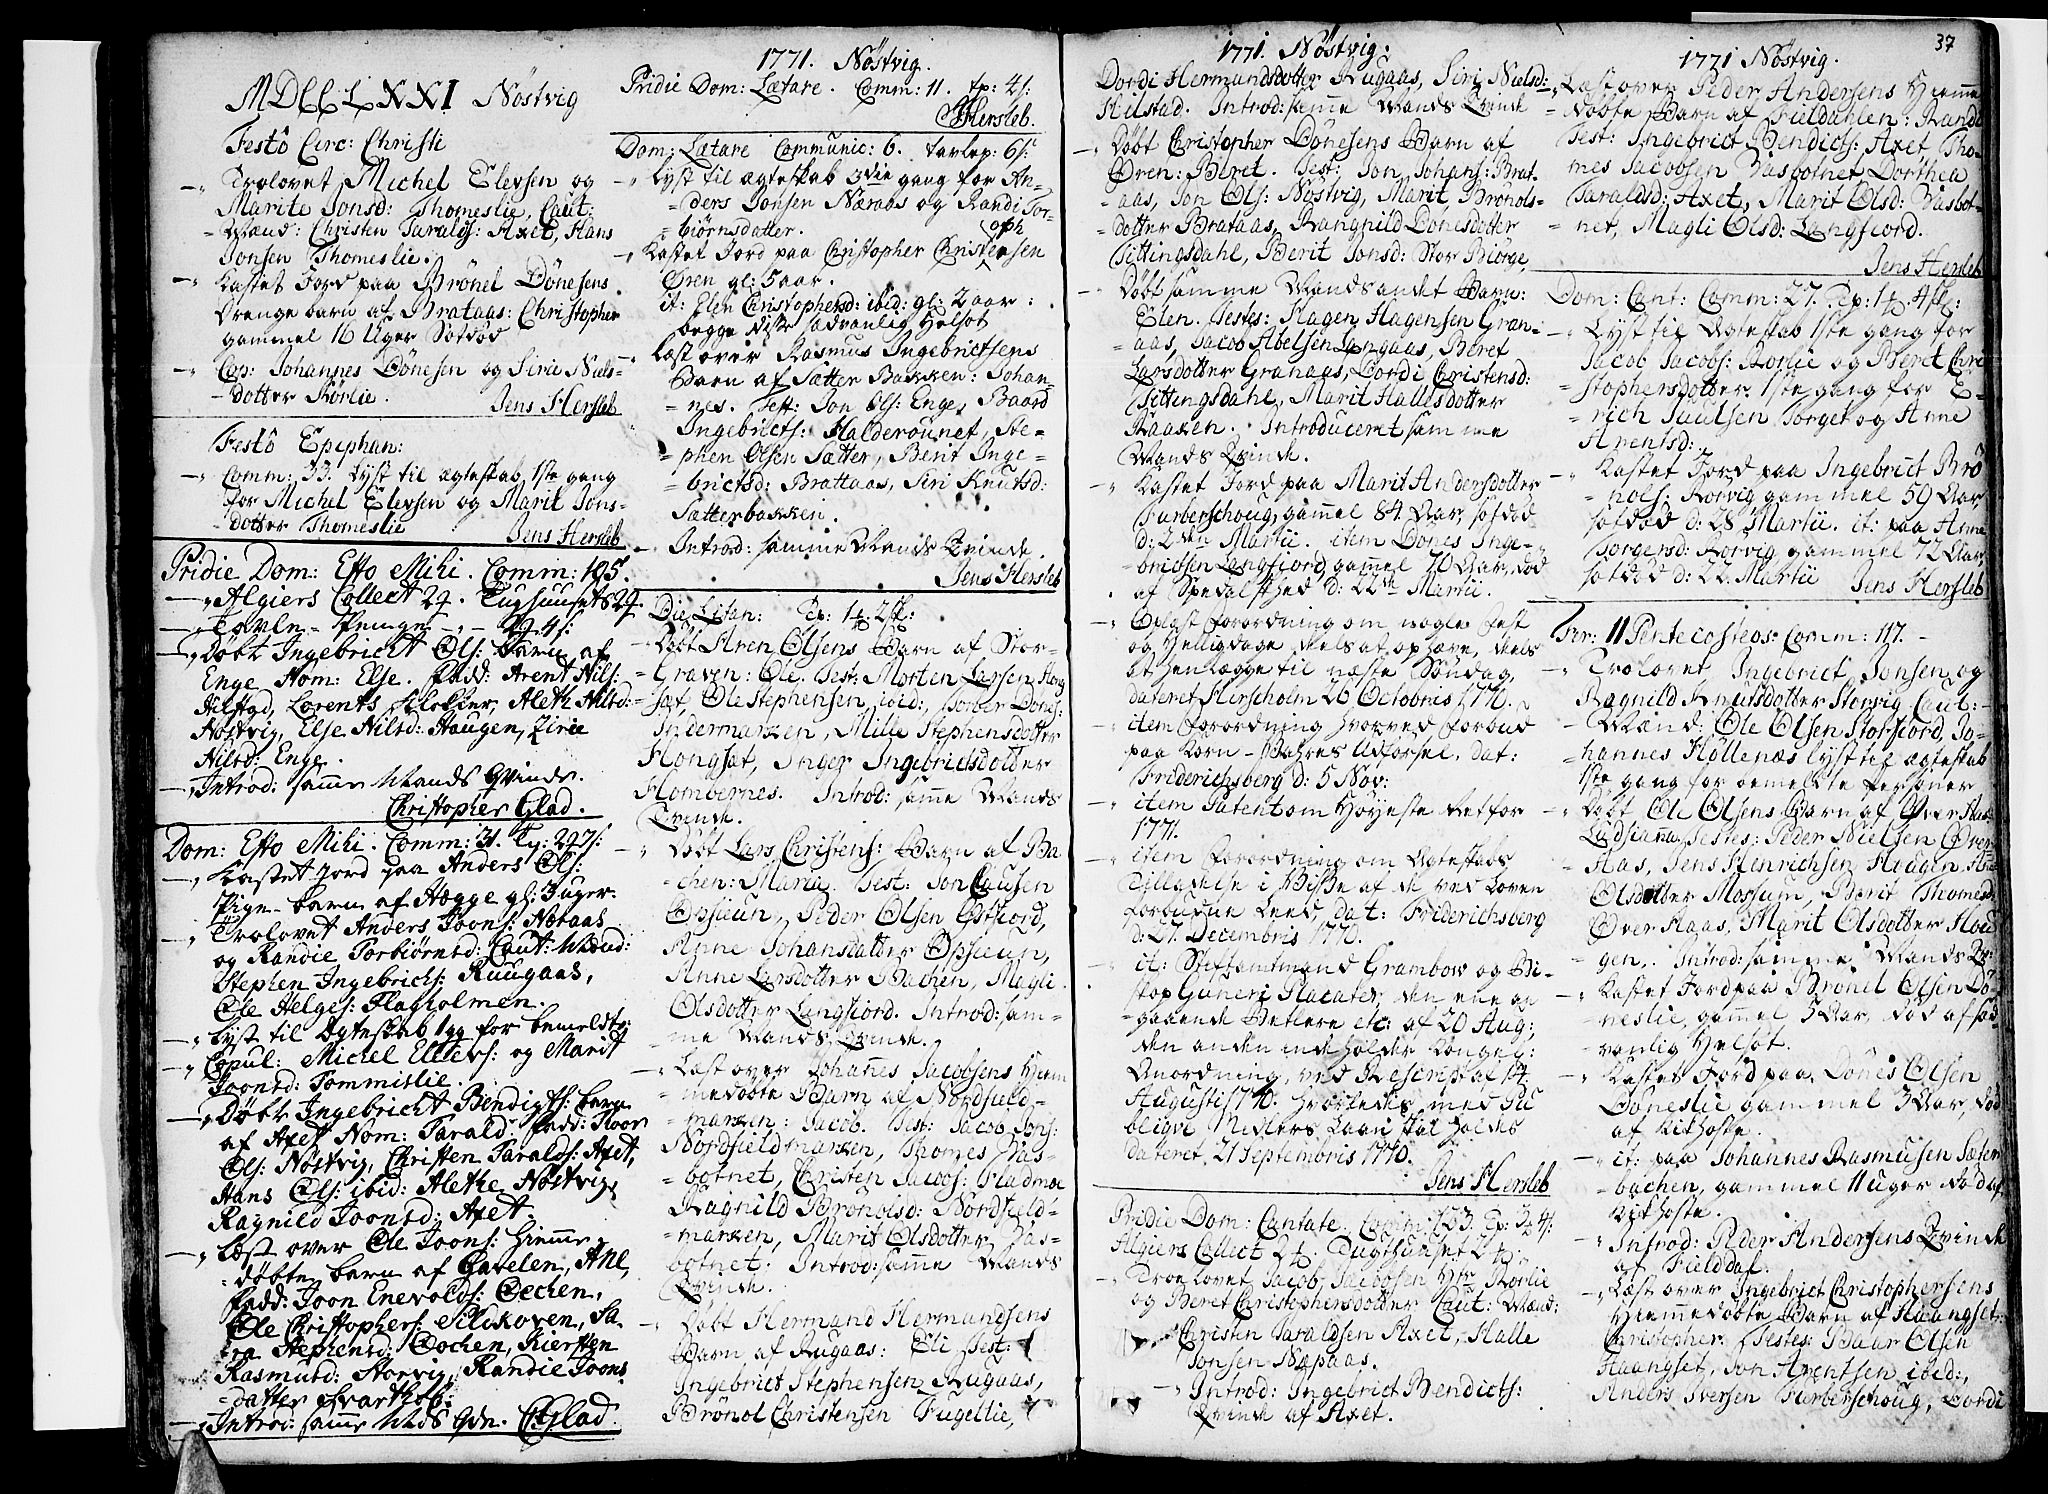 MDCCLXXI Nöstvig
Festô Circ: Christi
Trolovet Michel Elevsen og
Marite Jonsd: Thomeslie, Caut:
Mænd: Christen Taralds: Axet, Hans
Jonsen Thomeslie.
Kastet Jord paa Brönel Dönesens
Drenge barn af Brataas: Christopher
gammel 16 Uger
Cop: Johannes Dönesen og Siri Niels-
dotter Rörlie. Jens Hersleb
Festô Epiphan:
Comm: 33. Lyst til ægteskab 1ste gang
for Michel Elevsen og Marit Jons-
dotter Thomeslie Jens Hersleb
Pridie Dom: Esto Mihi. Comm: 105.
Algiers Collect
Tavle-Penge
Döbt Ingebricht Ols: barn af
Enge Nom: Else. Fadd: Arent Nils:
Lorents Alethe Nilsd:
Nöstvig, Else Nilsd: Haugen, Zirie
Nilsd: Enge.
Introd: samme Mands Qvinde.
Christopher Glad.
Dom: Esto Mihi. Comm: 31.
Kastet jord paa Anders Ols:
Pige-barn af Hegge gl: 3 uger.
Trolovet Anders Joons: Neraas
og Randie Torbiörnsd: Caut: Mænd:
Stephen Ingebrichs: Ruugaas,
Ole Helges: Flagholmen.
Lyst til Ægteskab 1 gg for bemeldte
Copul: Michel Ellevs: og Marit
Joonsd: Tommislie.
Döbt Ingebricht Bendigts: barn
af Axet Nom: Tarald. Fadd:
Ols: Nöstvig, Christen Taralds: Axet,
Hans Ols: ibid: Alethe Nöstvig,
Ragnild Joonsd: Axet.
Læst over Ole Joons: hiemme-
döbte barn af
Fadd: Joon Enevolds:
Ole Christophers:
Stephensd: Kiersten
Rasmusd: Storvig, Randie Joons
datter
Introd: samme Mds Qvn. CGlad.
1771. Nöstvig.
Pridie Dom: Lætare. Comm: 11. tp: 4ſ:
JHersleb.
Dom: Lætare Communic: 6. tavlep: 6ſ:
Lyst til ægteskab 3die gang for An-
ders Jonsen Næraas og Randi Tor-
biörnsdatter.
Kastet Jord paa Christopher Christensen
Ören gl: 5 aar.
it: Elen Christophersd: ibid: gl: 2 aar:
begge döde sædvanlig Helsot
Læst over Rasmus Ingebrictsens
Barn af Sætter Bakken: Johan-
nes. Test: Jon Ols: Enge, Baard
Ingebricts: Halderounet, Ste-
phen Olsen Sætter, Berit Inge-
brictsd: Brattaas, Siri Knutsd:
Sætterbakken.
Introd: samme Mands Qvinde.
Jens Hersleb
Die Litan:
Döbt Aren Olsens Barn af Stor-
Graven: Ole. Test: Morten Larsen Hong
sæt, Ole Stephensen, ibid:, Dones:
Indermarken, Mille Stephensdotter
Hongsæt, Inger Ingebrictsdotter
Hombernes. Introd: samme Mands
Qvinde.
Döbt Lars Christens: Barn af Ba
chen: Marta. Test: Jon Clausen
Opsieun, Peder Olsen Östfiord,
Anne Johansdatter Opsieun,
Anne Larsdotter Bachen, Magli
Olsdotter Langfiord. Introd: sam-
me Mands Qvinde.
Læst over Johannes Jacobsens Hiem
medöbte Barn af Nordfield-
marken: Jacob. Test: Jacob Jons:
Nordfieldmarken, Thomes Vas-
botnet, Christen Jacobs: Fladmoe
Ragnild Brönolsd: Nordfield-
marken, Marit Olsdotter Vas-
botnet. Introd: samme Mands
Qvinde.
Döbt Hermand Hermandsens
Barn af Rugaas: Eli. Test:
Ingebrict Stephensen Rugaas,
Brönol Christensen Fugellie,
1771. Nöstvig:
Dordi Hermandsdotter Rugaas, Siri Nielsd:
Hilstad. Introd: samme Mands Qvinde
Döbt Christopher Dönesens Barn af
Ören: Beret. Test: Jon Johans: Brat-
aas, Jon Ols: Nöstvig, Marit Brönols-
dotter Brataas, Rangnild Dönesdotter
Tittingsdahl, Berit Jonsd: Stor Biörge,
Döbt samme Mands andet Barn:
Elen. Testes: Hagen Hagensen Gran-
aas, Jacob Abelsen Langaas, Beret
Larsdotter Granaas, Dordi Christensd:
Tittingsdahl, Marit Hallesdotter
Raaken. Introduceret samme
Mands Qvinde.
Kastet Jord paa Marit Andersdotter
Farberschoug, gammel 84 Aar,
d: 2den Martii. item Dönes Inge-
brictsen Langfiord, gammel 70 Aar, död
af Spedalskhed d: 22de Martii.
Oplæst Forordning om nogle Fest
og Helligdage deels at ophæve, deels
at henlægge til næste Söndag,
dateret Hirscholm 26 Octobris 1770.
item Forordning hvorved Forbud
paa Korn-Vahres Udförsel. dat:
Friderichsberg d: 5 Nov:
item Patent om Höyeste Ret for
1771.
item Forordning om Ægteskabs
Tilladelse i Visse af de ved Loven
forbudne Leed, dat: Friderichsberg
d: 27. Decembris 1770.
it: Stiftsamtmand Grambow og Bi-
skop Guneri Placater, den ene an
gaaende Betlere etc: af 20 Aug:
den anden indeholder Kongel:
Anordning, ved Rescript af 14
Augusti 1770. hvorledes med Pu
bliqve Midlers Laan skal holdes
dateret 21 Septembris 1770.
Jens Hersleb
Pridie Dom: Cantate. Comm: 123.
Algiers Collect Tugthuuset
Troelovet Jacob Jacobsen Rörlie
og Beret Christophersdotter Caut: Mænd:
Christen Taraldsen Axet, Halle
Jonsen Næpaas.
Introd: Ingebrict Bendicts:
Qvinde af Axet.
37
1771 Nöstvig.
Læst over Peder Andersens Hiemme
döbte Barn af Fieldahlen: Randi
Test: Ingebrict Bendicts: Axet Tho-
mes Jacobsen Vasbotnet, Dorthea
Taraldsd: Axet, Marit Olsd: Vasbot-
net, Magli Olsd: Langfiord.
Jens Hersleb
Dom: Cant: Comm: 27.
Lyst til Ægteskab 1ste gang for
Jacob Jacobs: Rörlie og Beret Chri
stophersdotter. 1ste gang for E-
rich Paulsen Torget og Anne
Arentsd:
Kastet Jord paa Ingebrict Brö
nols: Rorvig gammel 59 Aar,
d: 28 Martii. it: paa Anne
Torgersd: Rorvig gammel 72 Aar,
d: 22 Martii Jens Hersleb
Fer: II Pentecosteos: Comm: 117.
Trolovet Ingebrict Jonsen og
Ragnild Knutsdotter Storvig Caut:
Mænd: Ole Olsen Storfiord, Jo-
hannes Hollenæs lyst til ægteskab
1ste gang for bemeldte Personer
Döbt Ole Olsens Barn af Över Haas
Testes: Peder Nielsen Över
Haas, Jens Henrichsen Hougen,
Olsdotter Mossum, Berit Thomesd:
Över Haas, Marit Olsdotter Hou
gen. Introd: samme Mands
Kastet Jord paa Brönel Olsen Dö-
neslie, gammel 5 Aar, död af sæd
vanlig Helsot.
Kastet Jord paa Dönes Olsen
Döneslie gammel 3 Aar, död
af Kikhoste.
it: paa Johannes Rasmusen Sæter
bachen, gammel 11 uger död af
Kikhoste.
Introd: Peder Andersens Qvinde
af Fielddal.
Læst over Ingebrict Christophersens
Hiemmedöbte Barn af Haangset:
Christopher. Testes: Baar Olsen
Haangset, Jon Arentsen ibid:,
Anders Iversen Farberschoug, Dordi